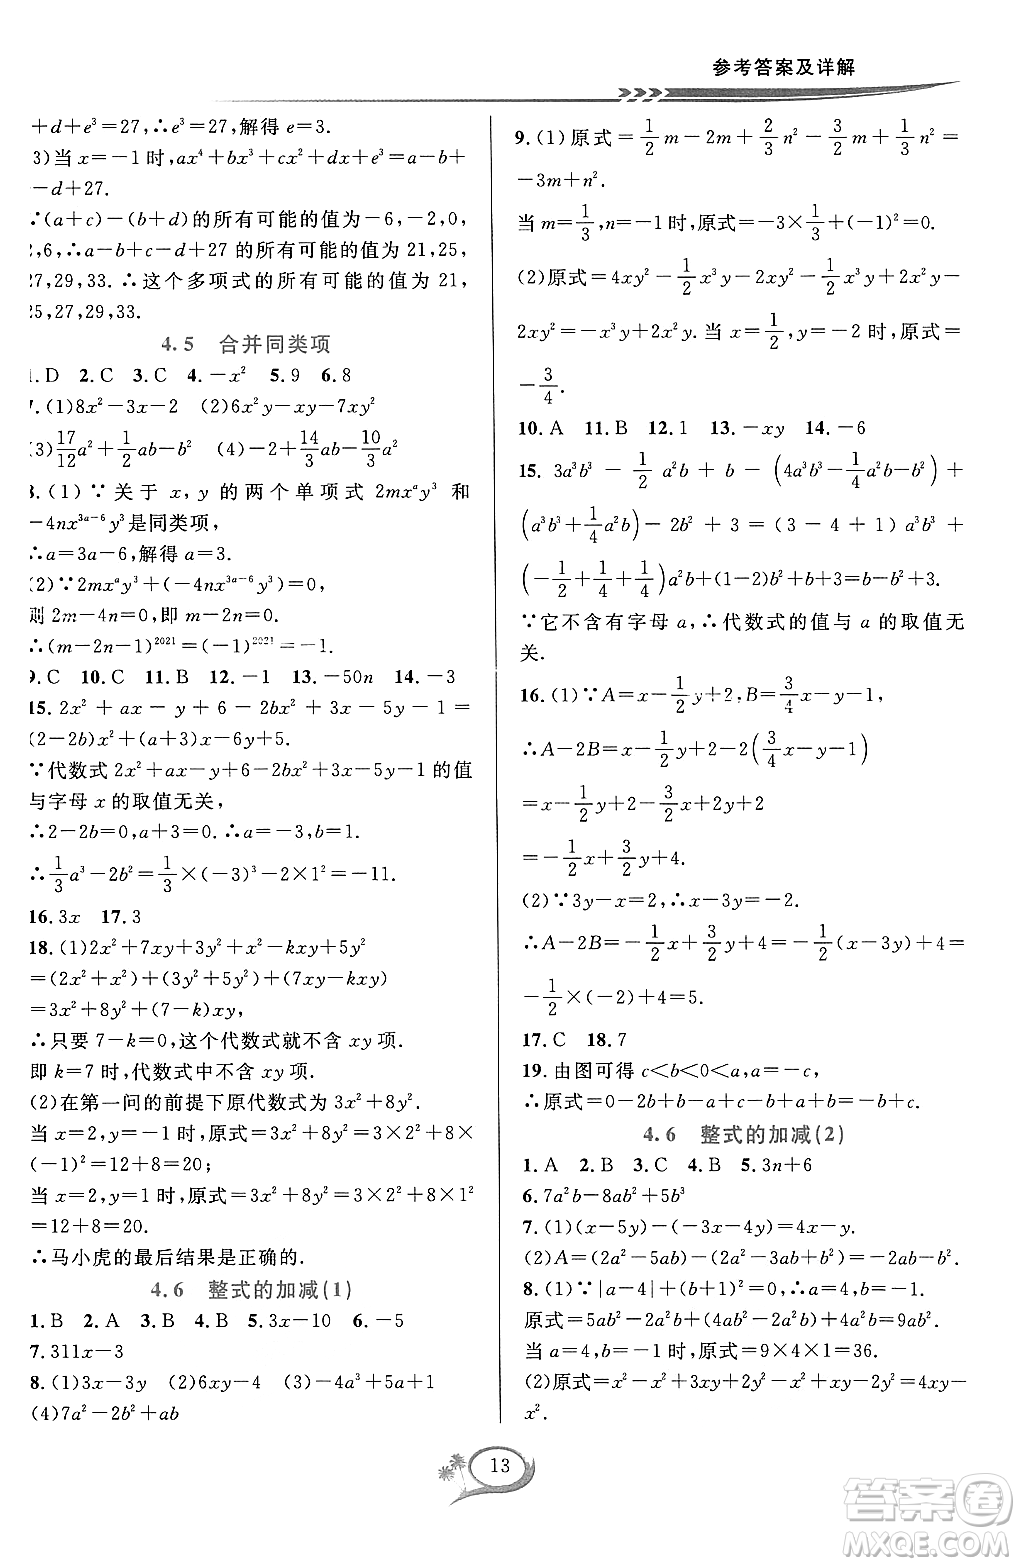 参考答案及详解
+d+e³=27,∴e³=27,解得 e=3.
3)当 x=-1 时,ax⁴+bx³+cx²+dx+e³=a-b+
-d+27.
∴(a+c)-(b+d)的所有可能的值为-6,-2,0,
2,6,∴a-b+c-d+27 的所有可能的值为 21,25,
27,29,33.∴这个多项式的所有可能的值为 21,
25,27,29,33.
4.5 合并同类项
1.D 2.C 3.C 4.-x² 5.9 6.8
7.(1)8x²-3x-2 (2)6x²y-xy-7xy²
(3)17/12a²+1/2ab-b² (4)-2+14/3ab-10/3a²
8.(1)∵关于 x,y 的两个单项式 2mxᵃy³ 和
-4nx³ᵃ⁻⁶y³是同类项,
∴a=3a-6,解得 a=3.
(2)∵2mxᵃy³+(-4nx³ᵃ⁻⁶y³)=0,
则 2m-4n=0,即 m-2n=0,
∴(m-2n-1)²⁰²¹=(-1)²⁰²¹=-1.
9.C 10.C 11.B 12.-1 13.-50n 14.-3
15.2x²+ax-y+6-2bx²+3x-5y-1=
(2-2b)x²+(a+3)x-6y+5.
∵代数式 2x²+ax-y+6-2bx²+3x-5y-1 的值
与字母 x 的取值无关,
∴2-2b=0,a+3=0.∴a=-3,b=1.
∴1/3a³-2b²=1/3×(-3)³-2×1²=-11.
16.3x 17.3
18.(1)2x²+7xy+3y²+x²-kxy+5y²
=(2x²+x²)+(3y²+5y²)+(7xy-kxy)
=3x²+8y²+(7-k)xy,
∴只要 7-k=0,这个代数式就不含 xy 项.
即 k=7 时,代数式中不含 xy 项.
(2)在第一问的前提下原代数式为 3x²+8y².
当 x=2,y=-1 时,原式=3x²+8y²=3×2²+8×
(-1)²=12+8=20;
当 x=2,y=1 时,原式=3x²+8y²=3×2²+8×1²
=12+8=20.
∴马小虎的最后结果是正确的.
4.6 整式的加减(1)
1.B 2.A 3.B 4.B 5.3x-10 6.-5
7.311x-3
8.(1)3x-3y (2)6xy-4 (3)-4a³+5a+1
(4)7a²-2b²+ab
9.(1)原式=1/2m-2m+2/3n²-3/2m+1/3n²=
-3m+n².
当 m=1/3,n=-1 时,原式=-3×1/3+(-1)²=0.
(2)原式=4xy²-1/2x²y-2xy²-1/2x²y+2x²y-
2xy²=x²y.当 x=1/2,y=-2 时,原式=x²y=
-3/4.
10.A 11.B 12.1 13.-xy 14.-6
15.3a³b³-1/2a²b+b-(4a³b³-1/4a²b-b²)+
(a³b³+1/4a²b)-2b²+3=(3-4+1)a³b³+
(-1/2+1/4+1/4)a²b+(1-2)b²+b+3=b-b²+3.
∵它不含有字母 a,∴代数式的值与 a 的取值无
关.
16.(1)∵A=x-1/2y+2,B=3/4x-y-1,
∴A-2B=x-1/2y+2-2(3/4x-y-1)
=x-1/2y+2-3/2x+2y+2
=-1/2x+3/2y+4.
(2)∵3y-x=2,∴x-3y=-2.
∴A-2B=-1/2x+3/2y+4=-1/2(x-3y)+4=
-1/2×(-2)+4=5.
17.C 18.7
19.由图可得 c<b<0<a,a<-c,
∴原式=0-2b+a+c-a+b=-b+c.
4.6 整式的加减(2)
1.A 2.B 3.C 4.B 5.3n+6
6.7a²b-8ab²+5b³
7.(1)(x-5y)-(-3x+4y)=4x-9y.
(2)A=(2a²-5ab)-(-2ab+b²)=2a²-3ab-b².
8.(1)∵|a-4|+(b+1)²=0,∴a=4,b=-1.
原式=5ab²-2a²b+(4ab²+2a²b)=9ab².
当 a=4,b=-1 时,原式=9×4×1=36.
(2)原式=x²-x²+3xy+2y²+2x²-3xy-2y²=
2x².
13
答案圈
MXQE.COM